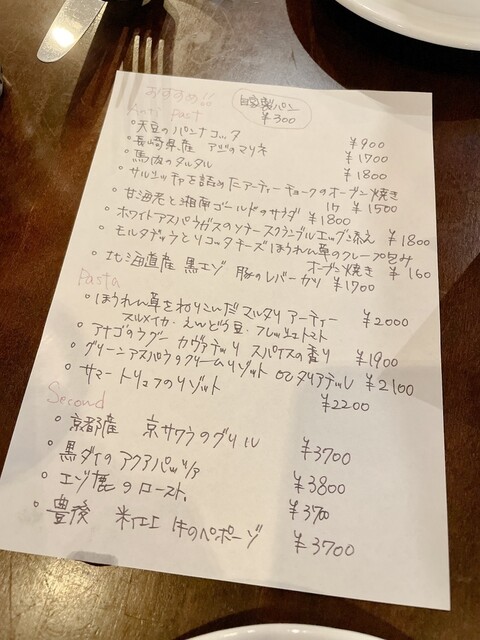 おすすめ!!
自家製パン
¥300
Anti past
・天豆のパンナコッタ ¥900
・長崎県産 アジのマリネ ¥1700
・馬肉のタルタル ¥1800
・サルシッチャを詰めたアーティーチョークのオーブン焼き
1ヶ ¥1500
・甘海老と湘南ゴールドのサラダ ¥1800
・ホワイトアスパラガスのソテースクランブルエッグ添え ¥1800
・モルタデッラとリコッタチーズほうれん草のクレープ包み
オーブン焼き ¥160
・北海道産 黒エゾ豚のレバーカツ ¥1700
Pasta
・ほうれん草をねりこんだマルタリアーティー ¥2000
スルメイカ・えんどう豆・フレッシュトマト
・アナゴのラグー カヴァテッリ スパイスの香り ¥1900
・グリーンアスパラのクリームリゾット orタリアテッレ ¥2100
・サマートリュフのリゾット ¥2200
Second
・京都産 京サワラのグリル ¥3700
・黒ダイのアクアパッツァ ¥3800
・エゾ鹿のロースト。 ¥3700
・豊後 牛のペポーゾ ¥3700